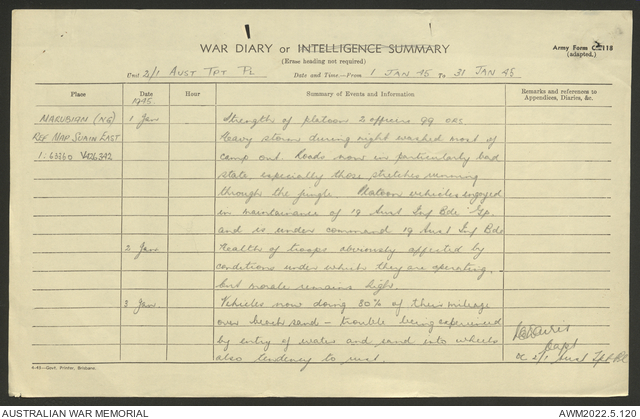 WAR DIARY or INTELLIGENCE SUMMARY
Army Form C.2118
(adapted.)
(Erase heading not required)
Unit 2/1 AUST TPT PL Date and Time—From 1 JAN 45 To 31 JAN 45
Place Date Hour Summary of Events and Information Remarks and references to Appendices, Diaries, &c.
1945.
MARUBIAN (NG) 1 Jan Strength of platoon 2 officers 99 ORs
REF MAP SUAIN EAST Heavy storm during night washed most of
1:63360 camp out. Roads now in particularly bad
state especially those stretches running
through the jungle. Platoon vehicles engaged
in maintainance of 19 Aust Inf Bde Gp.
and is under command 19 Aust Inf Bde
2 Jan Health of troops obviously affected by
conditions under which they are operating.
but morale remains high.
3 Jan. Vehicles now doing 80% of their mileage
over beach sand — trouble being experienced
by entry of water and sand into wheels
Capt
also tendency to rust. OC 2/1 Aust Tpt Pl
4-43—Govt. Printer, Brisbane.
AUSTRALIAN WAR MEMORIAL AWM2022.5.120